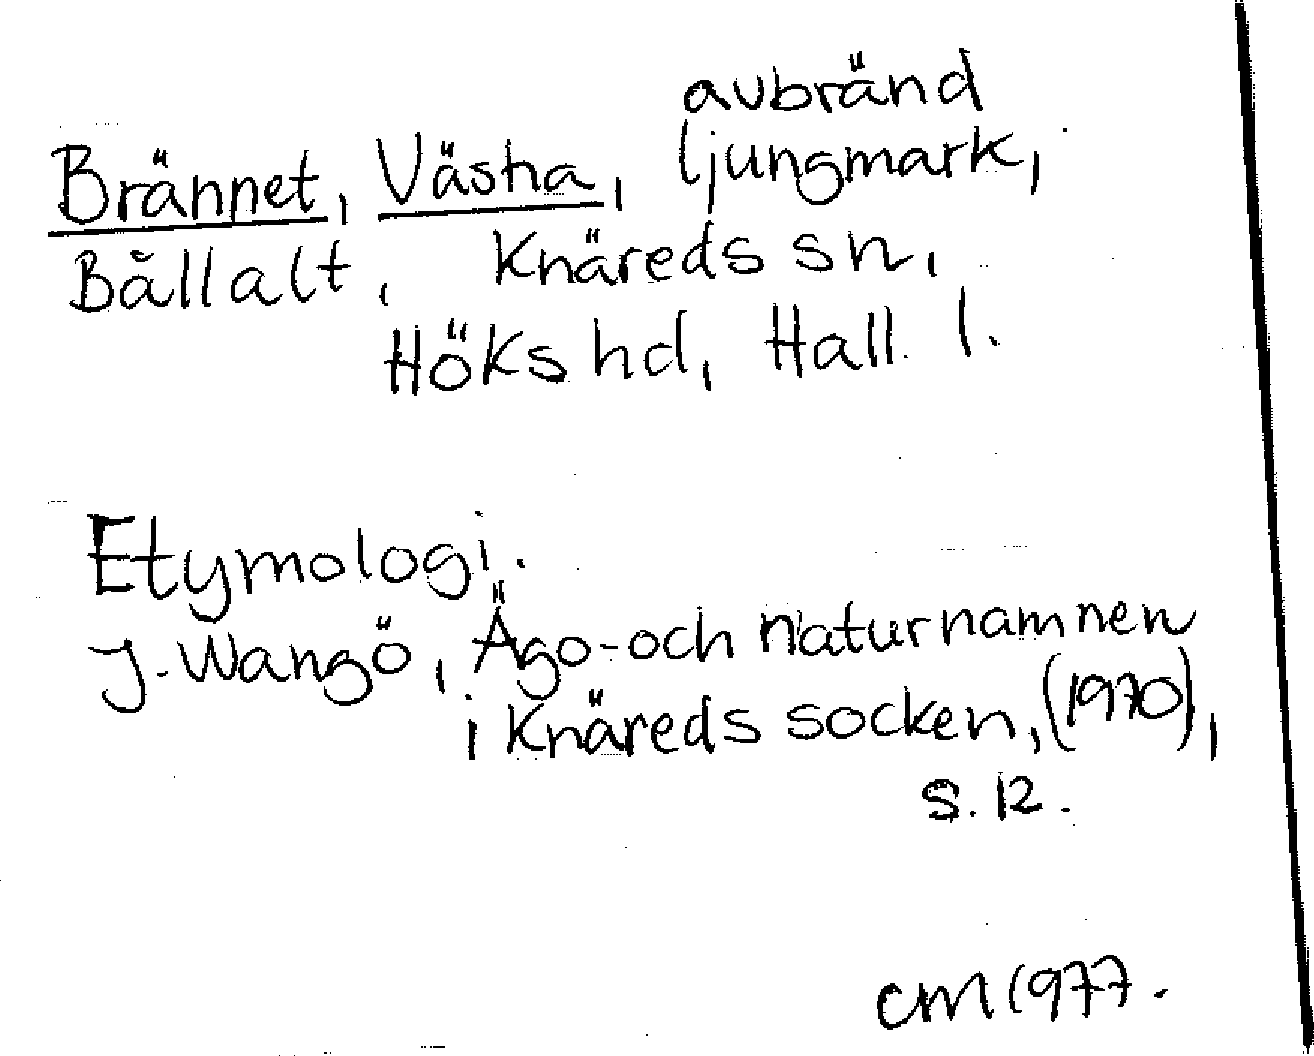 avbränd
Brännet, Västra, ljungmark,
Bållalt, Knäreds sn,
Höks hd, Hall. l.
Etymologi.
J. Wangö, Ägo- och naturnamnen
i Knäreds socken, (1970),
s. 12.
CM 1977.